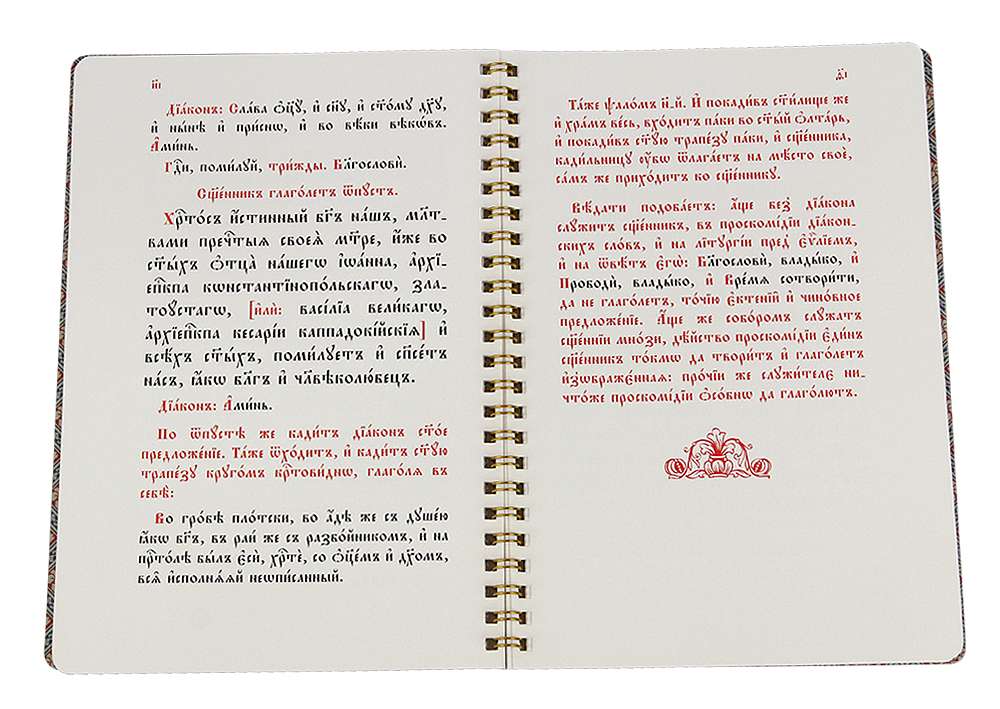 и҃і
Дїа́конъ: Сла́ва ѻ҆ц҃ꙋ̀, и҆ сн҃ꙋ, и҆ ст҃о́мꙋ дх҃ꙋ,
и҆ ны́нѣ и҆ при́снѡ, и҆ во вѣ́ки вѣкѡ́въ.
А҆ми́нь.
Гдⷭ҇и, поми́лꙋй, три́жды. Бл҃гословѝ.
Сщ҃е́нникъ глаго́летъ ѿпꙋ́стъ.
Хрⷭ҇то́съ и҆́стинный бг҃ъ на́шъ, мл҃т-
вами пречⷭ҇тыѧ своеѧ̀ мт҃ре, и҆̀же во
ст҃ы́хъ ѻ҆тца̀ на́шегѡ і҆ѡа́нна, а҆рхїе-
пⷭ҇кпа кѡнстантїнопо́льскагѡ, зла-
тоꙋ́стагѡ, [и҆лѝ: васі́лїа вели́кагѡ,
а҆рхїепⷭ҇кпа кесарі́и каппадокі́йскїѧ] и҆
всѣ́хъ ст҃ы́хъ, поми́лꙋетъ и҆ сп҃се́тъ
на́съ, ꙗ҆́кѡ бл҃гъ и҆ чл҃вѣколю́бецъ.
Дїа́конъ: А҆ми́нь.
По ѿпꙋ́стѣ же кади́тъ дїа́конъ ст҃о́е
предложе́нїе. Та́же ѿхо́дитъ, и҆ кади́тъ ст҃ꙋ́ю
трапе́зꙋ крꙋго́мъ крⷭ҇тови́днѡ, глаго́лѧ въ
себѣ̀:
Во гро́бѣ пло́тски, во а҆́дѣ же съ дꙋше́ю
ꙗ҆́кѡ бг҃ъ, въ раи́ же съ разбо́йникомъ, и҆ на
прⷭ҇то́лѣ бы́лъ є҆сѝ, хрⷭ҇тѐ, со ѻ҆ц҃е́мъ и҆ дх҃омъ,
всѧ̑ и҆сполнѧ́ѧй неѡпи́санный.
ѳ҃і
Та́же ѱало́мъ н҃-й. И҆ покади́въ ст҃и́лище же
и҆ хра́мъ ве́сь, вхо́дитъ па́ки во ст҃ы́й ѻ҆лта́рь,
и҆ покади́въ ст҃ꙋ́ю трапе́зꙋ па́ки, и҆ сщ҃е́нника,
кади́льницꙋ ᲂу҆́бѡ ѿлага́етъ на мѣ́сто своѐ,
са́мъ же прихо́дитъ ко сщ҃е́нникꙋ.
Вѣ́дати подоба́етъ: а҆́ще без̾ дїа́кона
слꙋ́житъ сщ҃е́нникъ, въ проскомі́дїи дїа́кон-
скихъ сло́въ, и҆ на лїтꙋргі́и пред̾ є҆ѵⷢ҇лїемъ,
и҆ на ѿвѣ́тъ є҆гѡ̀: Бл҃гословѝ, влады́ко, и҆
Прободѝ, влады́ко, и҆ Вре́мѧ сотвори́ти,
да не глаго́летъ, то́чїю є҆ктенїѝ и҆ чино́вное
предложе́нїе. А҆́ще же собо́ромъ слꙋ́жатъ
сщ҃е́нницы мно́зи, дѣ́йство проскомі́дїи є҆ди́нъ
сщ҃е́нникъ то́кмѡ да твори́тъ и҆ глаго́летъ
и҆з̾ѡбраже́ннаѧ: про́чїи же слꙋжи́телє ни-
что́же проскомі́дїи ѻ҆со́бнѡ да глаго́лютъ.